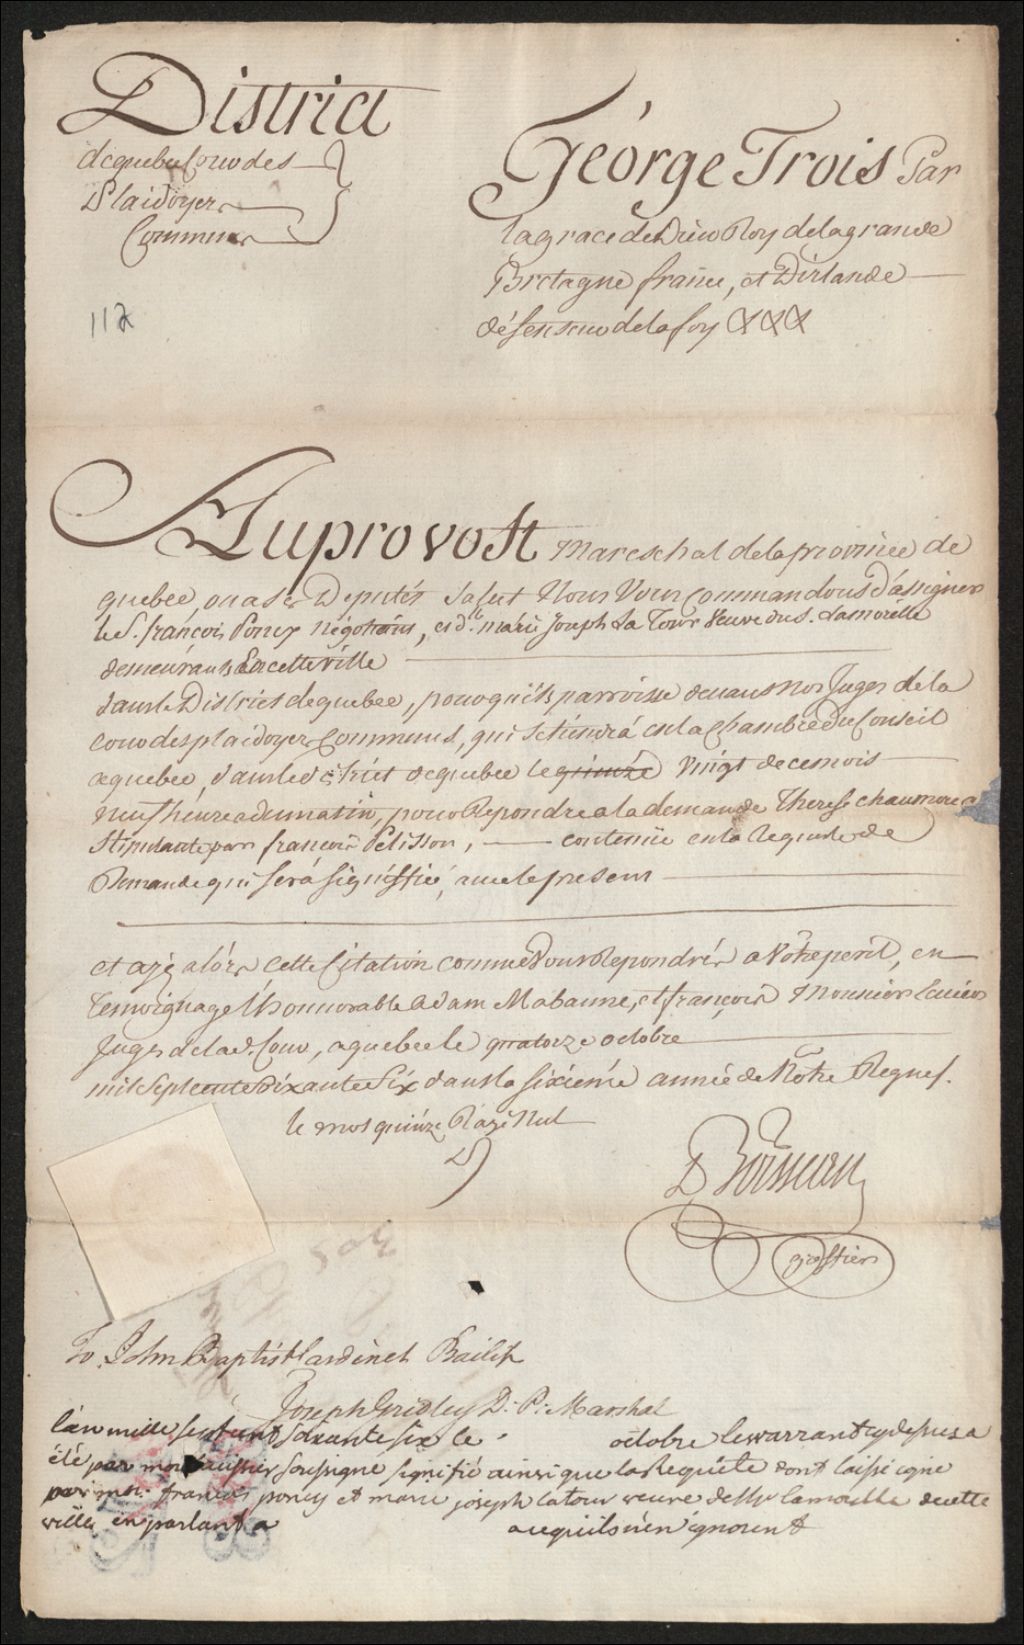 District
de quebec Cour des
Plaidoyer
Commun
George Trois Par
la grace de Dieu Roy de la grande
Bretagne france, et D'irlande
défenseur de la foy &&&
112
Au provost Mareschal de la province de
quebec, ou a ses Députés Salut Nous Vous Commandons D'assigner
le S. françois Poncy Négotiant, et dle. marie Joseph La Tour Veuve du S. Lamorelle
demeurants En cette ville
dans le District de quebec, pour quils parroisse devant nos Juges de la
cour des plaidoyers Communs, qui se tiendrá en la Chambre Du Conseil
a quebec, dans le district de quebec le quinze vingt de ce mois
neuf heures du matin, pour Repondre a la demande Therese chaumore
Stipulante par françois Pélisson, contenüe en la Requeste de
Demande qui será Signiffiée avec le present
et ayé alórs cette Citation comme Vous Repondrés a Vôtre peril, en
Temoignage L'honnorable Adam Mabanne, et françois Mounier Ecuiers
Juges de la d. Cour, a quebec le quatorze octobre
mil Sept cente Soixante Six dans la Sixiéme année de Nôtre Regne.
le mot quinze Razé Nul
D Boisseau
greffier
To. John Baptist Cardinet Bailif
Joseph Gridley D: P: Marshal
l'an mille sept cent soixante six le octobre le warrant cy dessus a
été par moi huissier soussigne signifié ainsi que la Requête dont laissé copie
par moi. francois poncy et marie joseph latour veuve de Mr lamorelle de cette
ville en parlant a a ce quils n'en ignorent